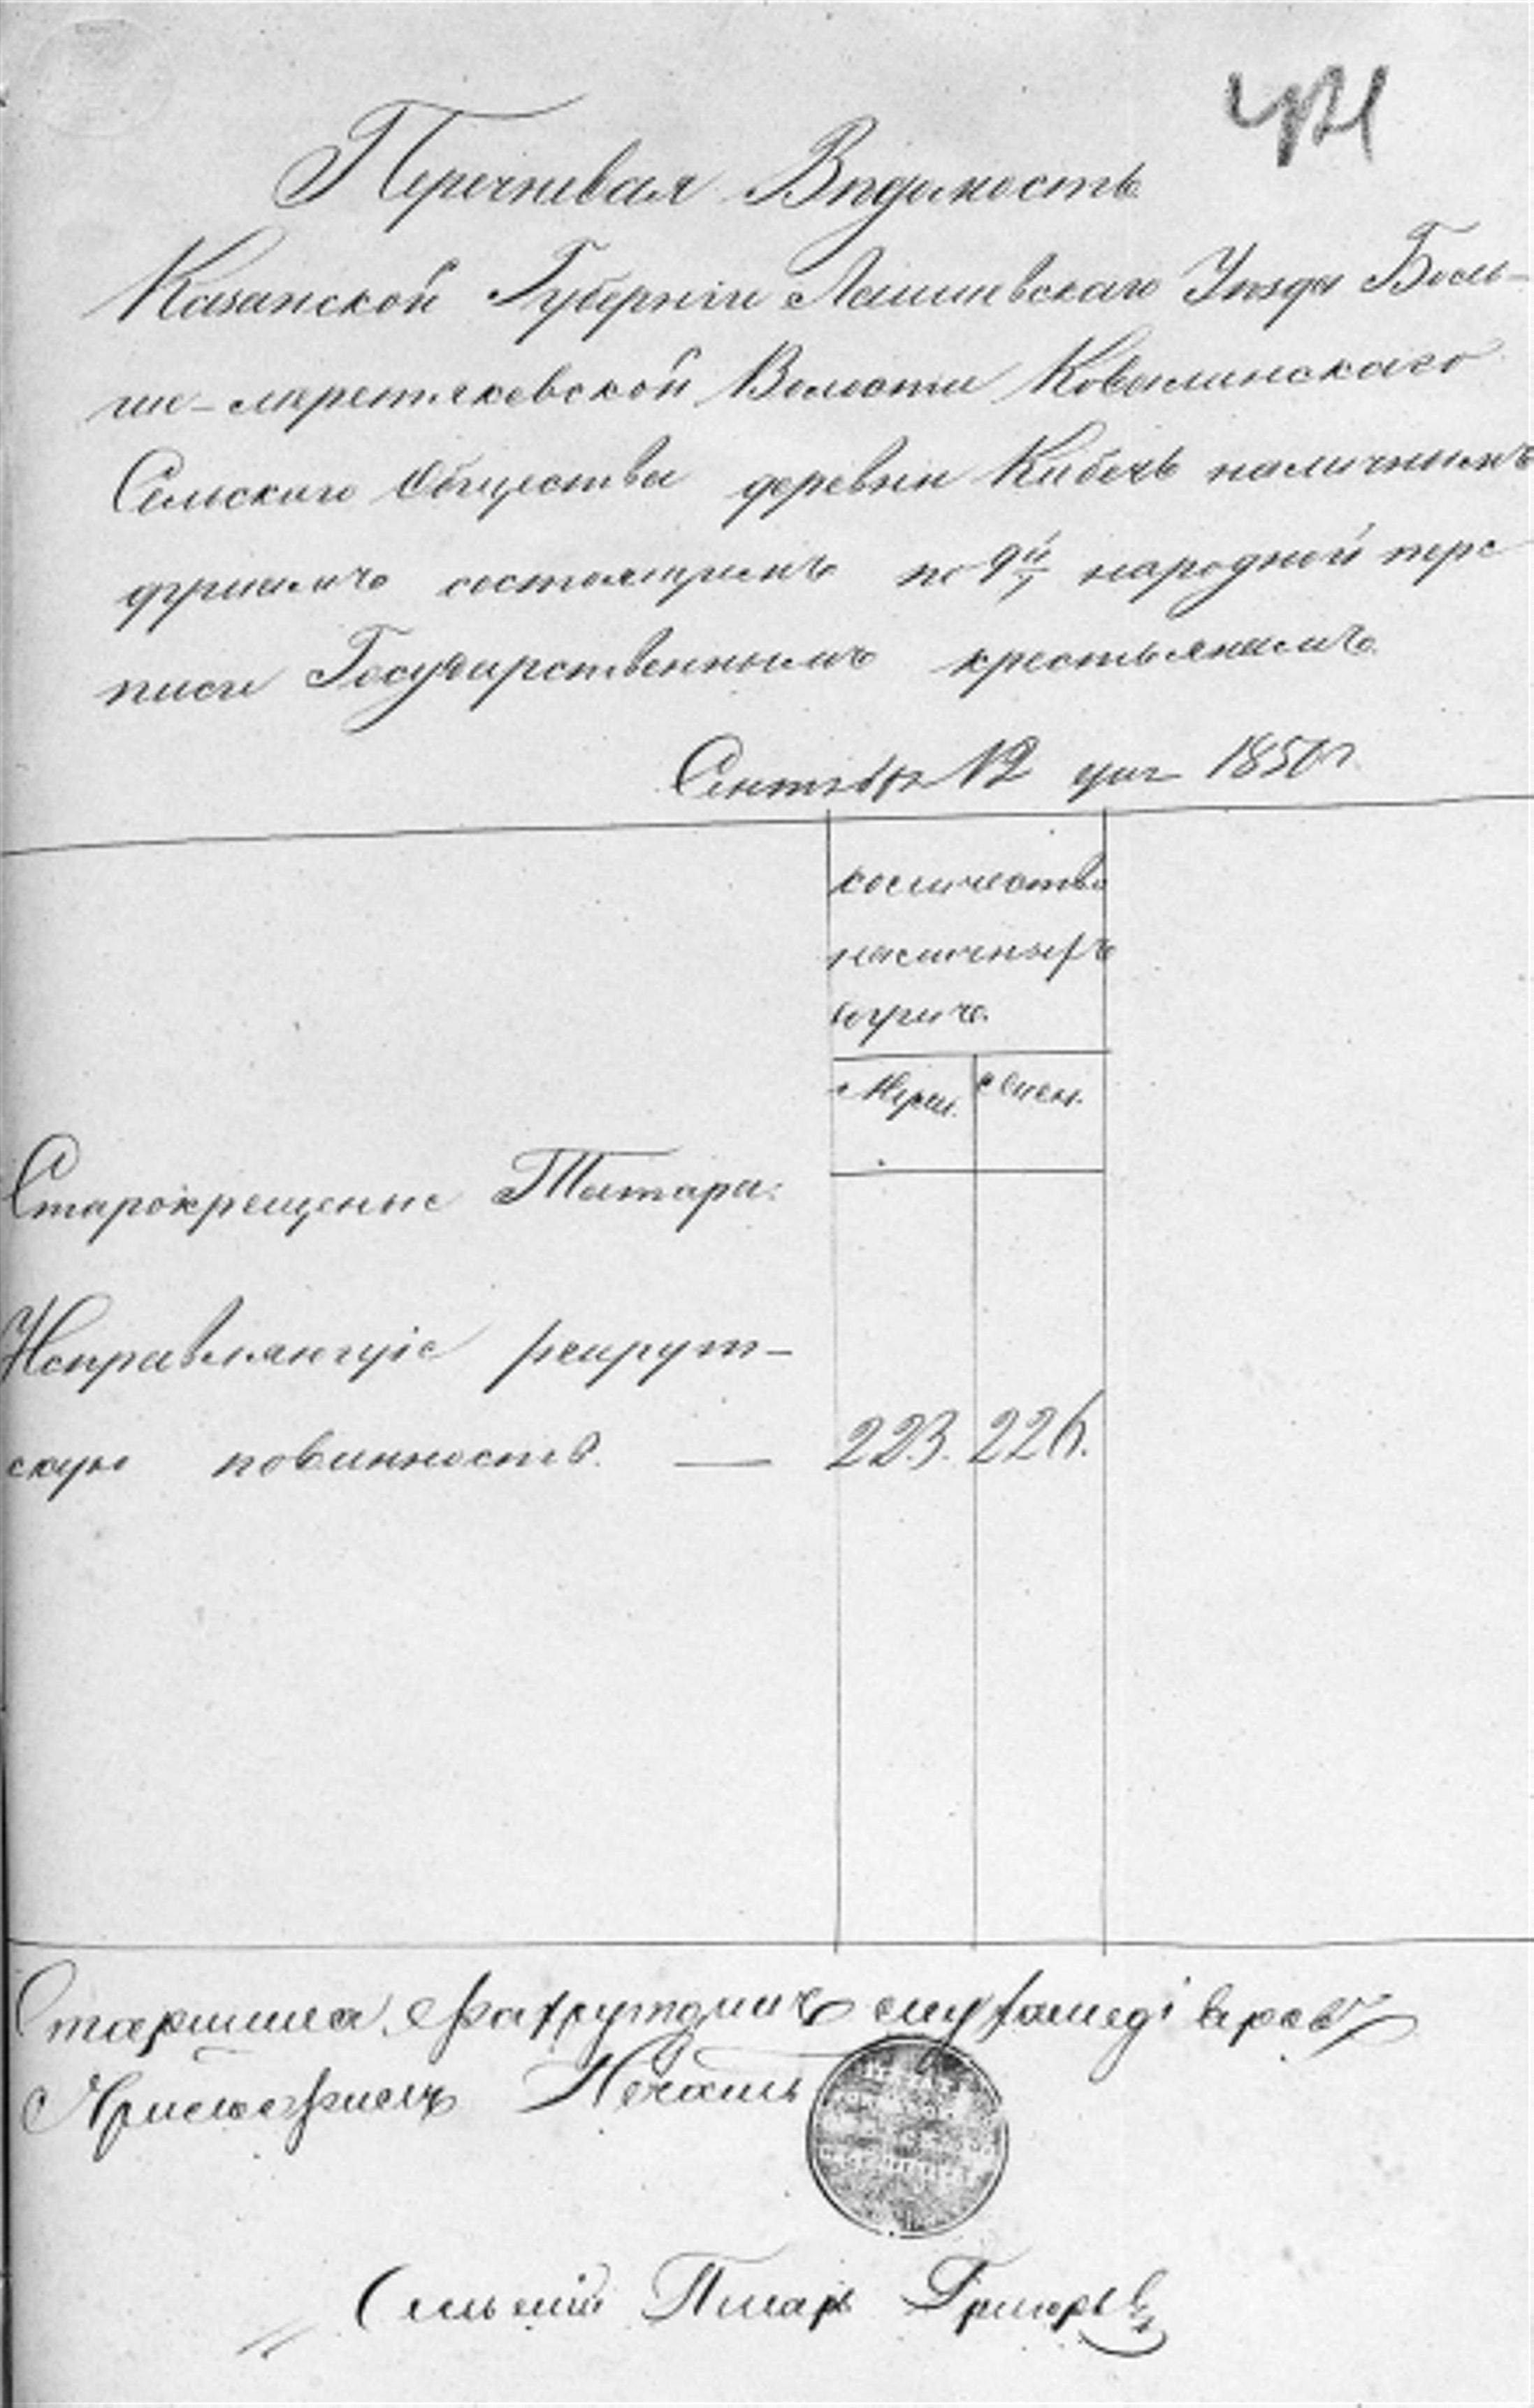 Перечневая Ведомость
Казанской Губерніи Лаишевскаго Уѣзда Боль-
ше-меретяковской Волости Ковалинскаго
Сельскаго Общества деревни Кибечь наличнымъ
душамъ состоящимъ по 9й народной пере
писи Государственнымъ крестьянамъ
Сентября 12 дня 1850 г
количество
наличныхъ
душъ.
Муж. Жен.
Старокрещеные Татара:
Исправляющіе рекрут-
скую повинность. — 223. 226.
Старшина Фахрутдинъ
Приложилъ Печать
Сельскій Писарь Григорьевъ